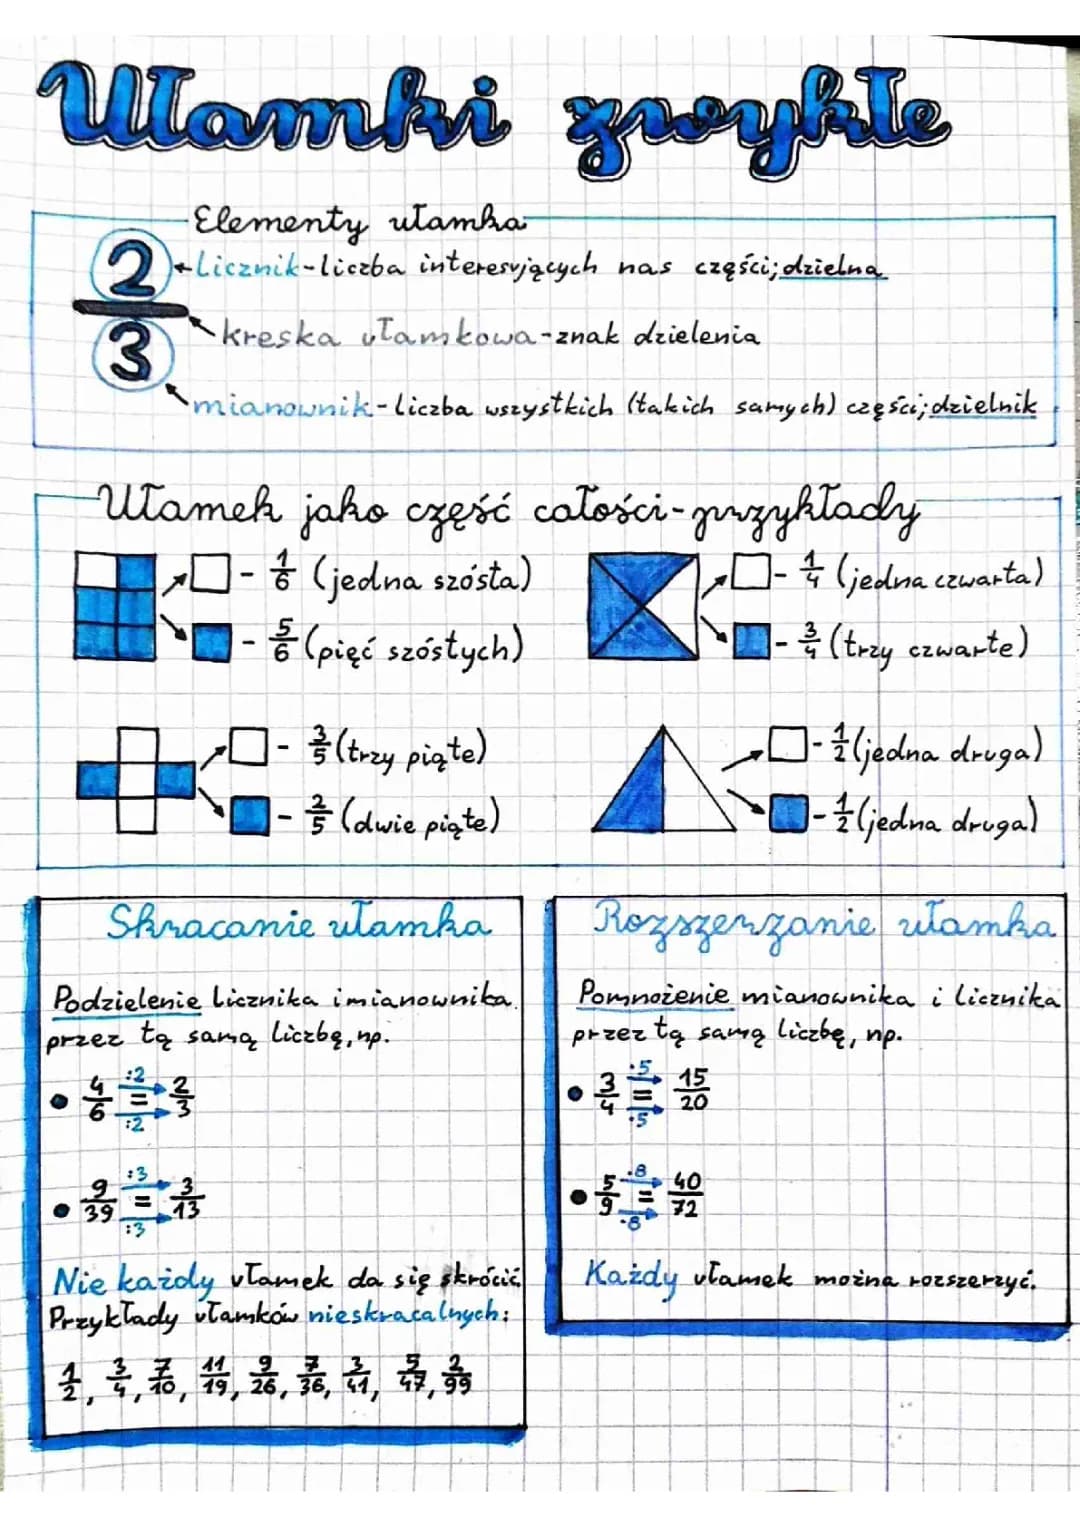 Ułamki zwykłe
Elementy ułamka:
2
3
Licznik-liczba interesujących nas części; dzielna
kreska ułamkowa-znak dzielenia
mianownik-liczba wszystkich (takich samych) części; dzielnik
Ułamek jako część całości-przykłady
- 1/6 (jedna szósta)
- 5/6 (pięć szóstych)
- 1/4 (jedna czwarta)
- 3/4 (trzy czwarte)
- 3/5 (trzy piąte)
- 2/5 (dwie piąte)
- 1/2 (jedna druga)
- 1/2 (jedna druga)
Skracanie ułamka
Podzielenie licznika i mianownika
przez tą samą liczbę, np.
• 4/6 :2 = :2 2/3
• 9/39 :3 = :3 3/13
Nie każdy ułamek da się skrócić.
Przykłady ułamków nieskracalnych:
1/2, 3/4, 7/10, 11/19, 9/26, 7/36, 3/41, 5/47, 2/99
Rozszerzanie ułamka
Pomnożenie mianownika i licznika
przez tą samą liczbę, np.
• 3/4 ·5 = ·5 15/20
• 5/9 ·8 = ·8 40/72
Każdy ułamek można rozszerzyć.